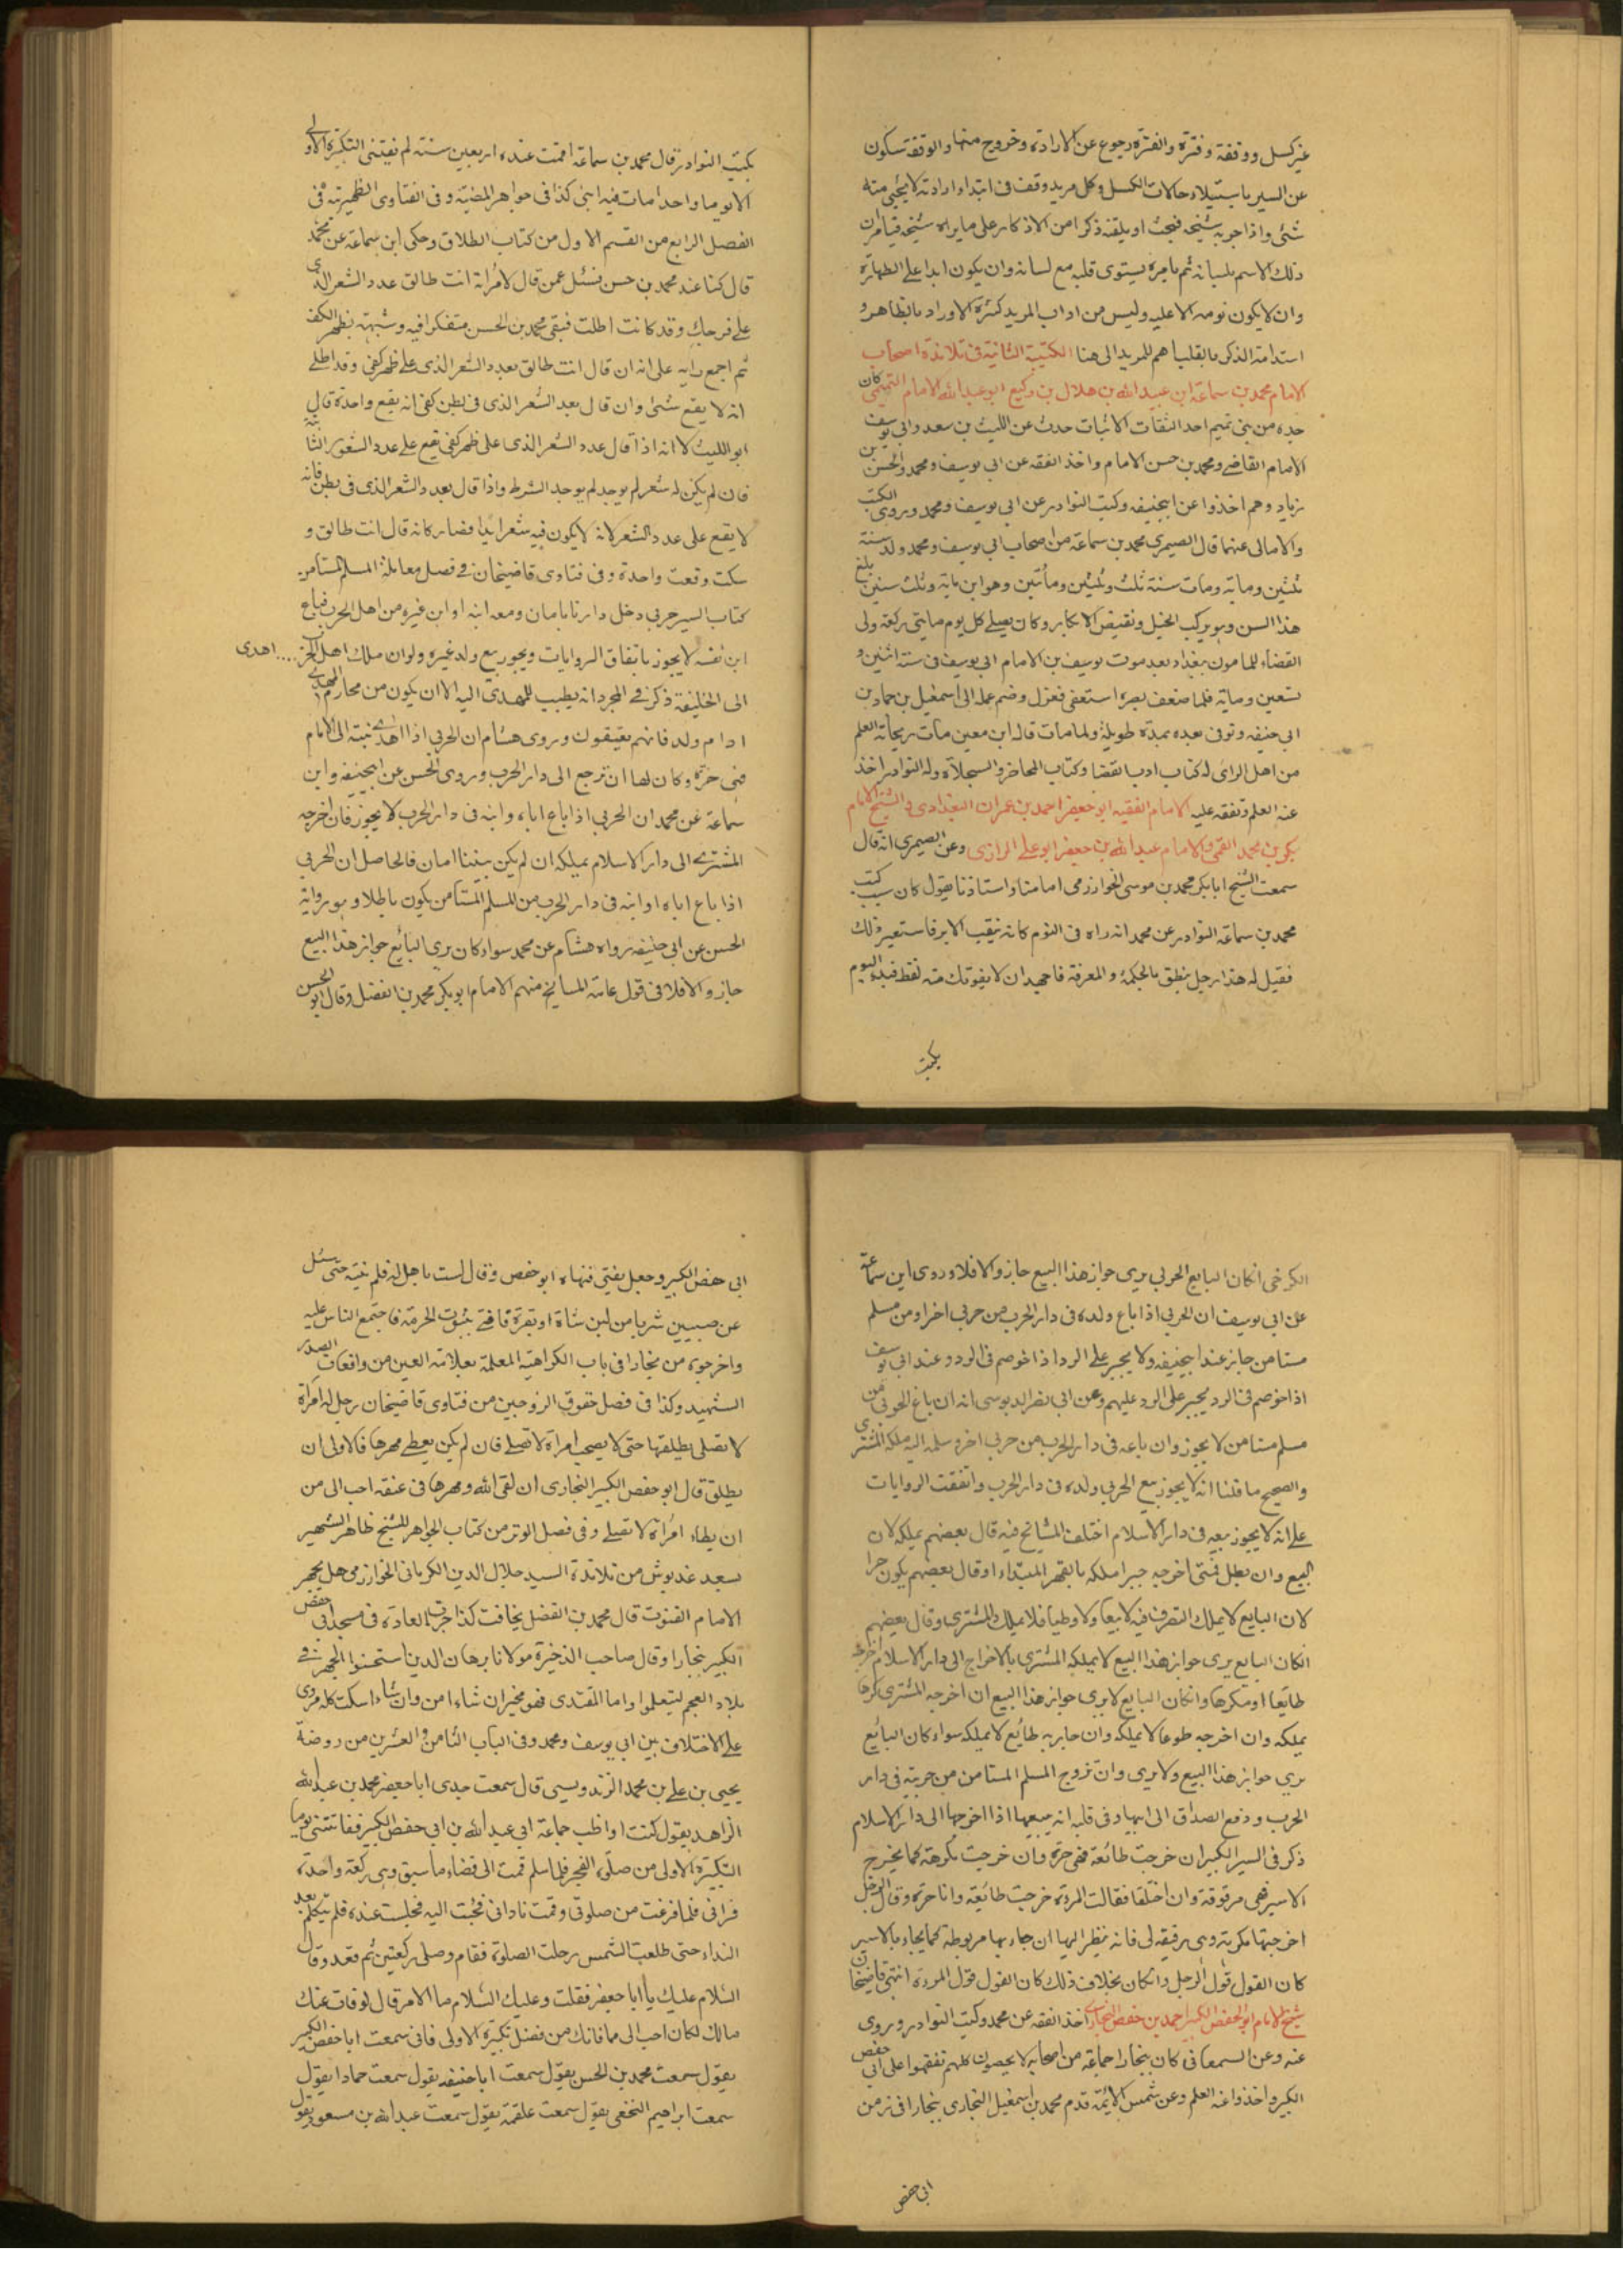 غير كسل ووقفة وفترة والفترة رجوع عن الارادة وخروج منها والوقفة سكون
عن السير باستيلاء حالات الكسل وكل مريد وقف في ابتداء ارادته لا يجئ منه
شئ واذا جربه شيخه فيجب ان يلقنه ذكرا من الاذكار على ما يراه شيخه فيامره ان
ذلك الاسم بلسانه ثم يامره يستوى قلبه مع لسانه وان يكون ابدا على الطهارة
وان لا يكون نومه الا عليه وليس من اداب المريد كثرة الاوراد بالظاهر و
استدامة الذكر بالقلب اهم للمريد الى هنا الكتيبة الثانية في تلامذة اصحاب
الامام محمد بن سماعة ابن عبيد الله بن هلال بن وكيع ابو عبد الله الامام التميمي كان
جده من بنى تميم احد الثقات الاثبات حدث عن الليث بن سعد وابى يوسف
الامام القاضى ومحمد بن حسن الامام واخذ الفقه عن ابى يوسف ومحمد والحسن بن
زياد وهم اخذوا عن ابيحنيفه وكتب النوادر عن ابى يوسف ومحمد وروى الكتب
والامالى عنهما قال الصيمرى محمد بن سماعة من اصحاب ابى يوسف ومحمد ولد سنة
ثلثين ومائة ومات سنة ثلث وثلثين ومأتين وهو ابن مائة وثلث سنين بلغ
هذا السن وهو يركب الخيل ويفتض الابكار وكان يصلى كل يوم مايتى ركعة ولى
القضاء للمامون ببغداد بعد موت يوسف بن الامام ابى يوسف في سنة اثنين و
تسعين ومائة فلما ضعف بصره استعفى فعزل وضم عمله الى اسمعيل بن حماد بن
ابى حنيفه وتوفى بعده بمدة طويلة ولما مات قال ابن معين مات ريحانة العلم
من اهل الراى له كتاب ادب القضا وكتاب المحاضر والسجلات وله النوادر اخذ
عنه العلم وتفقه عليه الامام الفقيه ابو جعفر احمد بن عمران البغدادى والشيخ الامام
بكر بن محمد القمى والامام عبد الله بن جعفر ابو على الرازى وعن الصيمرى انه قال
سمعت الشيخ ابا بكر محمد بن موسى الخوارزمى امامنا واستاذنا يقول كان سبب كتب
محمد بن سماعة النوادر عن محمد انه راه في النوم كانه ينقب الابر فاستعير ذلك
فقيل له هذا رجل ينطق بالحكمة والمعرفة فاجهد ان لا يفوتك منه لفظ فبدء اليوم
يكتب
يكتب النوادر قال محمد بن سماعة اقمت عنده اربعين سنة لم تفتنى التكبيرة الاولى
الا يوما واحدا مات فيه امى كذا في جواهر المضيئة وفي الفتاوى الظهيرية في
الفصل الرابع من القسم الاول من كتاب الطلاق وحكى ابن سماعة عن محمد
قال كنا عند محمد بن حسن فسئل عمن قال لامراته انت طالق عدد الشعر الذى
على فرجك وقد كانت اطلت فبقى محمد بن الحسن متفكرا فيه وشبهه بظهر الكف
ثم اجمع رايه على انه ان قال انت طالق بعدد الشعر الذى على ظهر كفى وقد اطلى
انه لا يقع شئ وان قال بعدد الشعر الذى في بطن كفى انه يقع واحدة قال
ابو الليث لا انه اذا قال عدد الشعر الذى على ظهر كفى يقع على عدد الشعور الثابتة
فان لم يكن له شعر لم يوجد لم يوجد الشرط واذا قال بعدد الشعر الذى في بطن فانه
لا يقع على عدد الشعر لانه لا يكون فيه شعر ابدا فصار كانه قال انت طالق و
سكت وقعت واحدة وفي فتاوى قاضيخان في فصل معاملة المسلم المستامن
كتاب السير حربى دخل دارنا بامان ومعه ابنه او ابن غيره من اهل الحرب فباع
ابن نفسه لا يجوز باتفاق الروايات ويجوز بيع ولد غيره ولو ان ملك اهل الحرب .... اهدى
الى الخليفة ذكر في المجرد انه يطيب للمهدى اليه الا ان يكون من محارم المهدى
او ام ولد فانهم يعتقون وروى هشام ان الحربى اذا اهدى بنته الى الامام
فهى حرة وكان لها ان ترجع الى دار الحرب وروى الحسن عن ابيحنيفه وابن
سماعة عن محمد ان الحربى اذا باع اباه وابنه في دار الحرب لا يجوز فان اخرجه
المشترى الى دار الاسلام يملكه ان لم يكن بيننا امان فالحاصل ان الحربى
اذا باع اباه او ابنه في دار الحرب من المسلم المستامن يكون باطلا وهو رواية
الحسن عن ابى حنيفه رواه هشام عن محمد سواء كان يرى البائع جواز هذا البيع
جاز والا فلا في قول عامة المشايخ منهم الامام ابو بكر محمد بن الفضل وقال ابو الحسن
الكرخى ان كان البايع الحربى يرى جواز هذا البيع جاز والا فلا وروى ابن سماعة
عن ابى يوسف ان الحربى اذا باع ولده في دار الحرب من حربى اخر او من مسلم
مستامن جاز عند ابيحنيفه ولا يجبر على الرد اذا خوصم في الرد وعند ابى يوسف
اذا خوصم في الرد يجبر على الرد عليهم وعن ابى نصر الدبوسى انه ان باع الحربى من
مسلم مستامن لا يجوز وان باعه في دار الحرب من حربى اخر وسلمه اليه ملكه المشترى
والصحيح ما قلنا انه لا يجوز بيع الحربى ولده في دار الحرب واتفقت الروايات
على انه لا يجوز بيعه في دار الاسلام اختلف المشايخ فيه قال بعضهم يملكه لان
البيع وان بطل فمتى اخرجه جبرا ملكه بالقهر المبتداء وقال بعضهم يكون حرا
لان البايع لا يملك التصرف فيه لا بيعا ولا وطيا فلا يملك المشترى وقال بعضهم
ان كان البايع يرى جواز هذا البيع لا يملكه المشترى بالاخراج الى دار الاسلام اخرجه
طايعا او مكرها وان كان البايع لا يرى جواز هذا البيع ان اخرجه المشترى كرها
يملكه وان اخرجه طوعا لا يملكه وان جاء به طائع لا يملكه سواء كان البائع
يرى جواز هذا البيع ولا يرى وان تزوج المسلم المستامن من حربية في دار
الحرب ودفع الصداق الى ابيها وفي قلبه انه يبيعها اذا اخرجها الى دار الاسلام
ذكر في السير الكبير ان خرجت طائعة فهى حرة وان خرجت مكرهة كما يخرج
الاسير فهى مرقوقة وان اختلفا فقالت المرءة خرجت طائعة وانا حرة وقال الرجل
اخرجتها مكرهة وهى رقيقة لى فانه ينظر اليها ان جاء بها مربوطة كما يجاء بالاسير
كان القول قول الرجل وان كان بخلاف ذلك كان القول قول المرءة انتهى قاضيخان
شيخ الامام ابو الحفص الكبير احمد بن حفص البخارى اخذ الفقه عن محمد وكتب النوادر وروى
عنه وعن السمعانى كان ببخارا جماعة من اصحابه لا يحصون كلهم تفقهوا على ابى حفص
الكبير واخذوا عنه العلم وعن شمس الائمة قدم محمد بن اسمعيل البخارى ببخارا في زمن
ابى حفص
ابى حفص الكبير وجعل يفتى فنهاه ابو حفص وقال لست باهل له فلم ينته حتى سئل
عن صبيين شربا من لبن شاة او بقرة فافتى بثبوت الحرمة فاجتمع الناس عليه
واخرجوه من بخارا في باب الكراهية المعلمة بعلامة العين من واقعات الصدر
الشهيد وكذا في فصل حقوق الزوجين من فتاوى قاضيخان رجل له امرأة
لا تصلى يطلقها حتى لا يصحب امراة لا تصلى فان لم يكن يعطى مهرها فالاولى ان
يطلق قال ابو حفص الكبير البخارى ان لقى الله ومهرها في عنقه احب الى من
ان يطاء امراة لا تصلى وفي فصل الوتر من كتاب الجواهر للشيخ ظاهر الشهير
بسعيد غدبوش من تلامذة السيد جلال الدين الكرمانى الخوارزمى هل يجهر
الامام القنوت قال محمد بن الفضل يخافت كذا جرت العادة في مسجد ابى حفص
الكبير ببخارا وقال صاحب الذخيرة مولانا برهان الدين استحسنوا الجهر في
بلاد العجم ليتعلموا واما المقتدى فهو مخير ان شاء امن وان شاء سكت كله مروى
على الاختلاف بين ابى يوسف ومحمد وفي الباب الثامن والعشرين من روضة
يحيى بن على بن محمد الزندويسى قال سمعت جدى ابا جعفر محمد بن عبد الله
الزاهد يقول كنت اواظب جماعة ابى عبد الله بن ابى حفص الكبير ففاتتنى يوما
التكبيرة الاولى من صلوة الفجر فلما سلم قمت الى قضاء ما سبق وهى ركعة واحدة
فرانى فلما فرغت من صلوتى وقمت نادانى فجئت اليه فجلست عنده فلم يتكلم بعد
النداء حتى طلعت الشمس وحلت الصلوة فقام وصلى ركعتين ثم قعد وقال
السلام عليك يا ابا جعفر فقلت وعليك السلام ما الامر قال لو فات عنك
مالك لكان احب الى مما فاتك من فضل تكبيرة الاولى فانى سمعت ابا حفص الكبير
يقول سمعت محمد بن الحسن يقول سمعت ابا حنيفه يقول سمعت حمادا يقول
سمعت ابراهيم النخعى يقول سمعت علقمة يقول سمعت عبد الله بن مسعود يقول